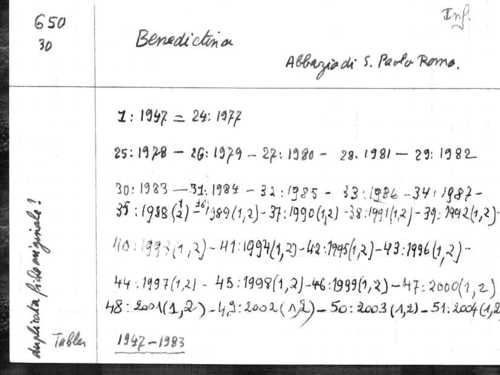 650
30
Inf.
Benedictina
Abbazia di S. Paolo Roma.
1: 1947 = 24: 1977
25: 1978 — 26: 1979 — 27: 1980 - 28. 1981 — 29: 1982
30: 1983 — 31: 1984 — 32: 1985 - 33: 1986 - 34: 1987 -
35: 1988 (1/2) = 36 1989 (1,2) - 37: 1990 (1,2) - 38: 1991 (1,2) - 39: 1992 (1,2) -
40: 1993 (1,2) - 41: 1994 (1,2) - 42: 1995 (1,2) - 43: 1996 (1,2) -
44: 1997 (1,2) - 45: 1998 (1,2) - 46: 1999 (1,2) - 47: 2000 (1,2)
48: 2001 (1,2) - 49: 2002 (1,2) - 50: 2003 (1,2) - 51: 2004 (1,2
1947-1983